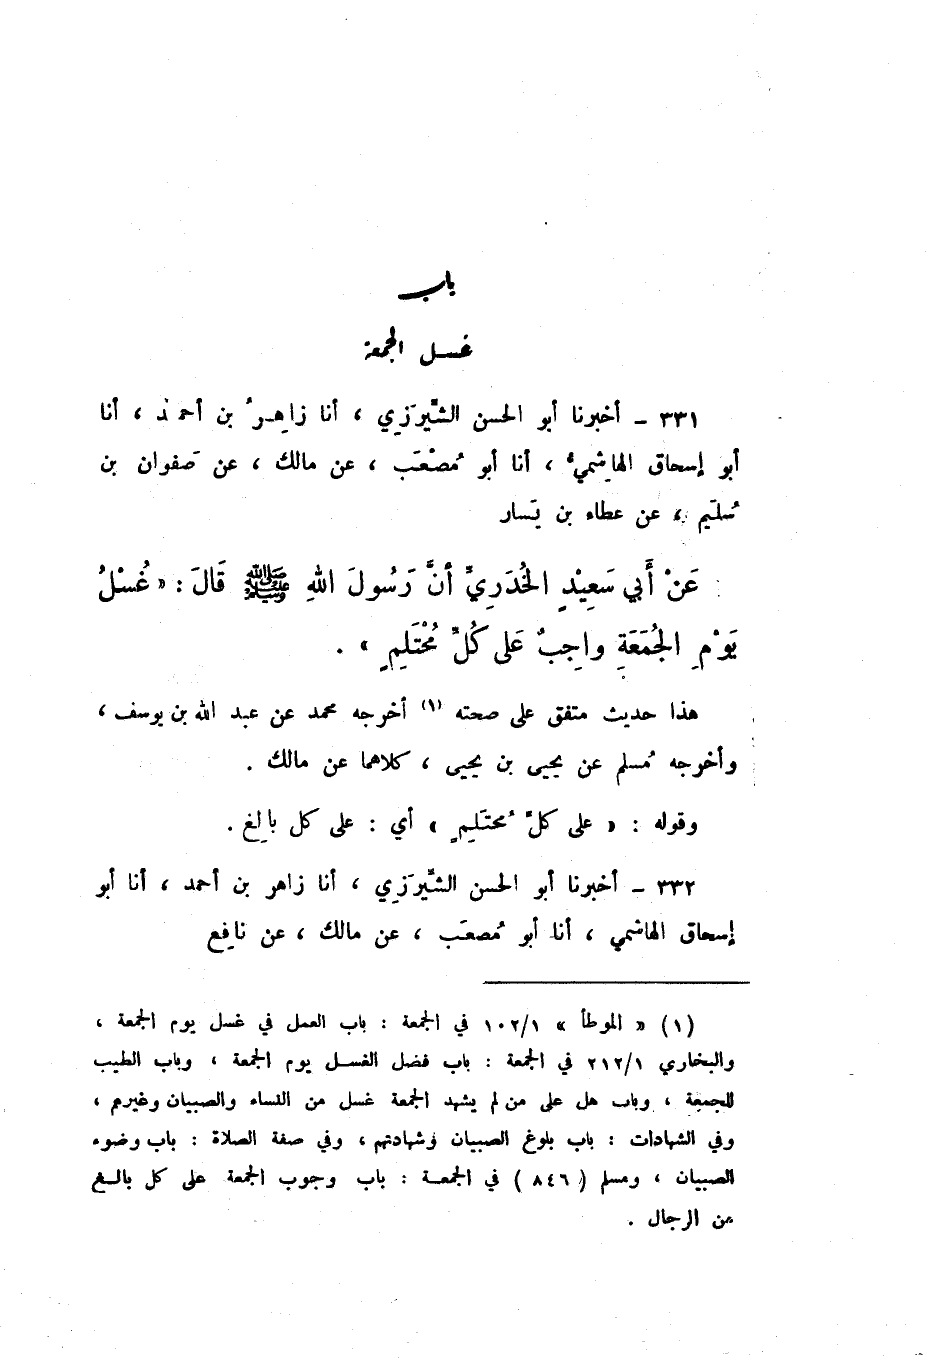 باب
غسل الجمعة
٣٣١ – أخبرنا أبو الحسن الشَّيرَزي ، أنا زاهِرُ بن أحمد ، أنا
أبو إسحاق الهاشِميُّ ، أنا أبو مُصْعَب ، عن مالك ، عن صَفوان بن
سُلَيم ، عن عطاء بن يَسار
عَنْ أَبي سَعِيْدٍ الخُدَرِيِّ أنَّ رَسُولَ اللهِ ﷺ قَالَ : « غُسْلُ
يَوْمِ الجُمَعَةِ واجِبٌ عَلى كُلِّ مُحْتَلِمٍ » .
هذا حديث متفق على صحته (١) أخرجه محمد عن عبد الله بن يوسف ،
وأخرجه مُسلم عن يحيى بن يحيى ، كلاهما عن مالك .
وقوله : « على كلِّ مُحتَلِمٍ » أي : على كل بالِغ .
٣٣٢ – أخبرنا أبو الحسن الشَّيرَزي ، أنا زاهر بن أحمد ، أنا أبو
إسحاق الهاشمي ، أنا أبو مُصعَب ، عن مالك ، عن نافِع
(١) « الموطأ » ١٠٢/١ في الجمعة : باب العمل في غسل يوم الجمعة ،
والبخاري ٢١٢/١ في الجمعة : باب فضل الغسل يوم الجمعة ، وباب الطيب
للجمعة ، وباب هل على من لم يشهد الجمعة غسل من النساء والصبيان وغيرهم ،
وفي الشهادات : باب بلوغ الصبيان وشهادتهم ، وفي صفة الصلاة : باب وضوء
الصبيان ، ومسلم ( ٨٤٦ ) في الجمعة : باب وجوب الجمعة على كل بالغ
من الرجال .